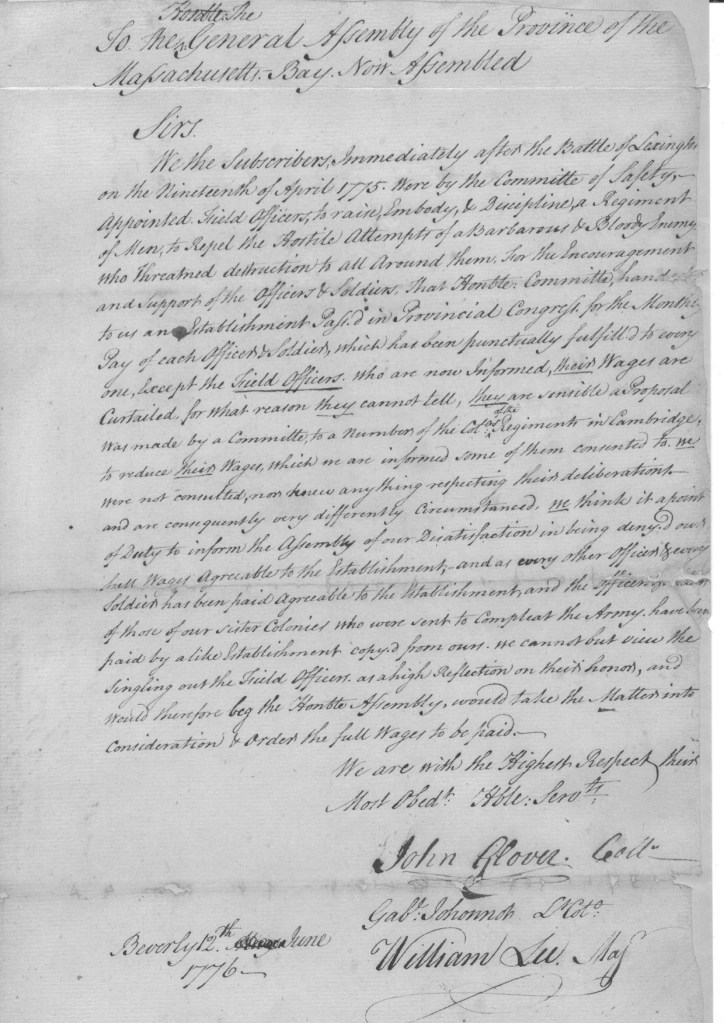 Honble The
To the General Assembly of the Province of the
Massachusetts-Bay Now Assembled
Sirs.
We the Subscribers, Immediately after the Battle of Lexington
on the Nineteenth of April 1775. Were by the Committe of Safety,
Appointed Field Officers, to raise, Embody, & Discipline, a Regiment
of Men, to Repel the Hostile Attempts of a Barbarous & Bloody Enemy
who threatned destruction to all Around them. For the Encouragement
and Support of the Officers & Soldiers, that Honble: Committe, handed
to us an Establishment Pass.d in Provincial Congress for the Monthly
Pay of each Officer & Soldier, which has been punctually fulfill'd to every
one, Except the Field Officers. who are now Informed, their Wages are
Curtailed, for what reason they cannot tell, they are sensible a Proposal
was made by a Committe, to a Number of the Colos of the Regiments in Cambridge,
to reduce their Wages, which we are informed some of them consented to. we
were not consulted, nor knew any thing respecting their deliberations
and are consequently very differently Circumstanced. we think it a point
of Duty to inform the Assembly of our Disatisfaction in being deny.d our
full Wages Agreeable to the Establishment, and as every other Officer & every
Soldier has been paid Agreeable to the Establishment, and the Officers
of those of our sister Colonies who were sent to Compleat the Army. have been
paid by a like Establishment copy.d from ours. we cannot but view the
Singling out the Field Officers. as a high Reflection on their honor, and
would therefore beg the Honble Assembly, would take the Matter into
Consideration & Order the full Wages to be paid.
We are with the Highest Respect their
Most Obedt. Hble: Servts.
John Glover. Coll
Gabl. Johonnot Lt Colo.
Beverly 12th June
William Lee. Majr
1776